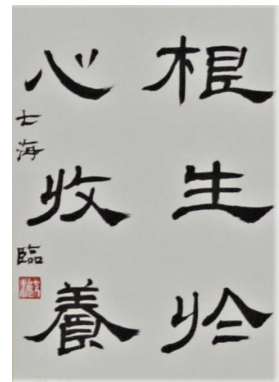 根生於
心收養
士海臨